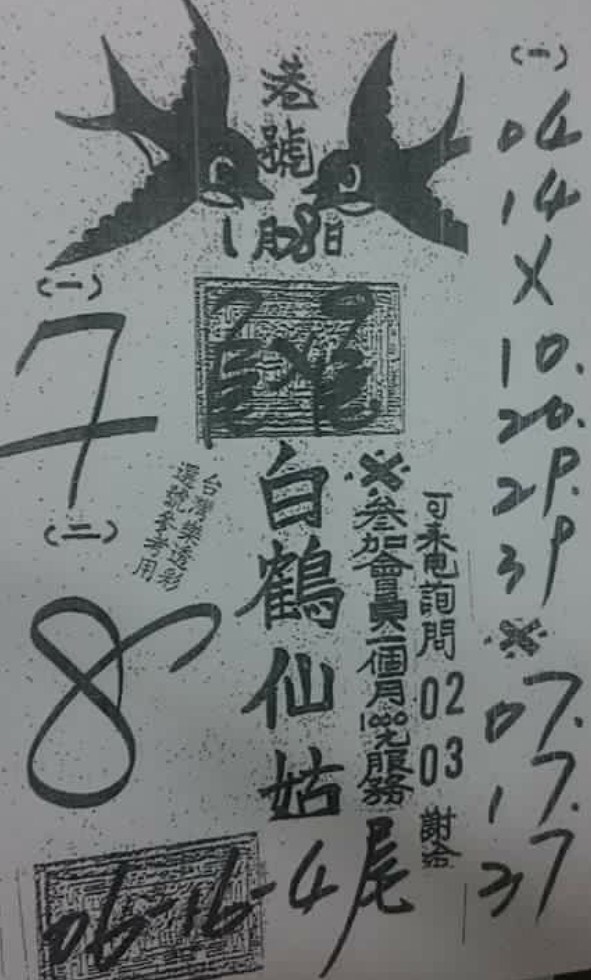 港號
1月28日
(一)
7
(二)
8
台灣樂透彩
選號參考用
白鶴仙姑
※參加會員一個月1000元服務
可來電詢問 02 03 謝洽
(一)
04
14
X
10.
20.
29.
39
※
07.
17.
37
06-16-4尾